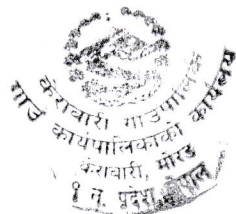 केराबारी गाउँपालिका
गाउँ कार्यपालिकाको कार्यालय
केराबारी, मोरङ
१ नं. प्रदेश, नेपाल